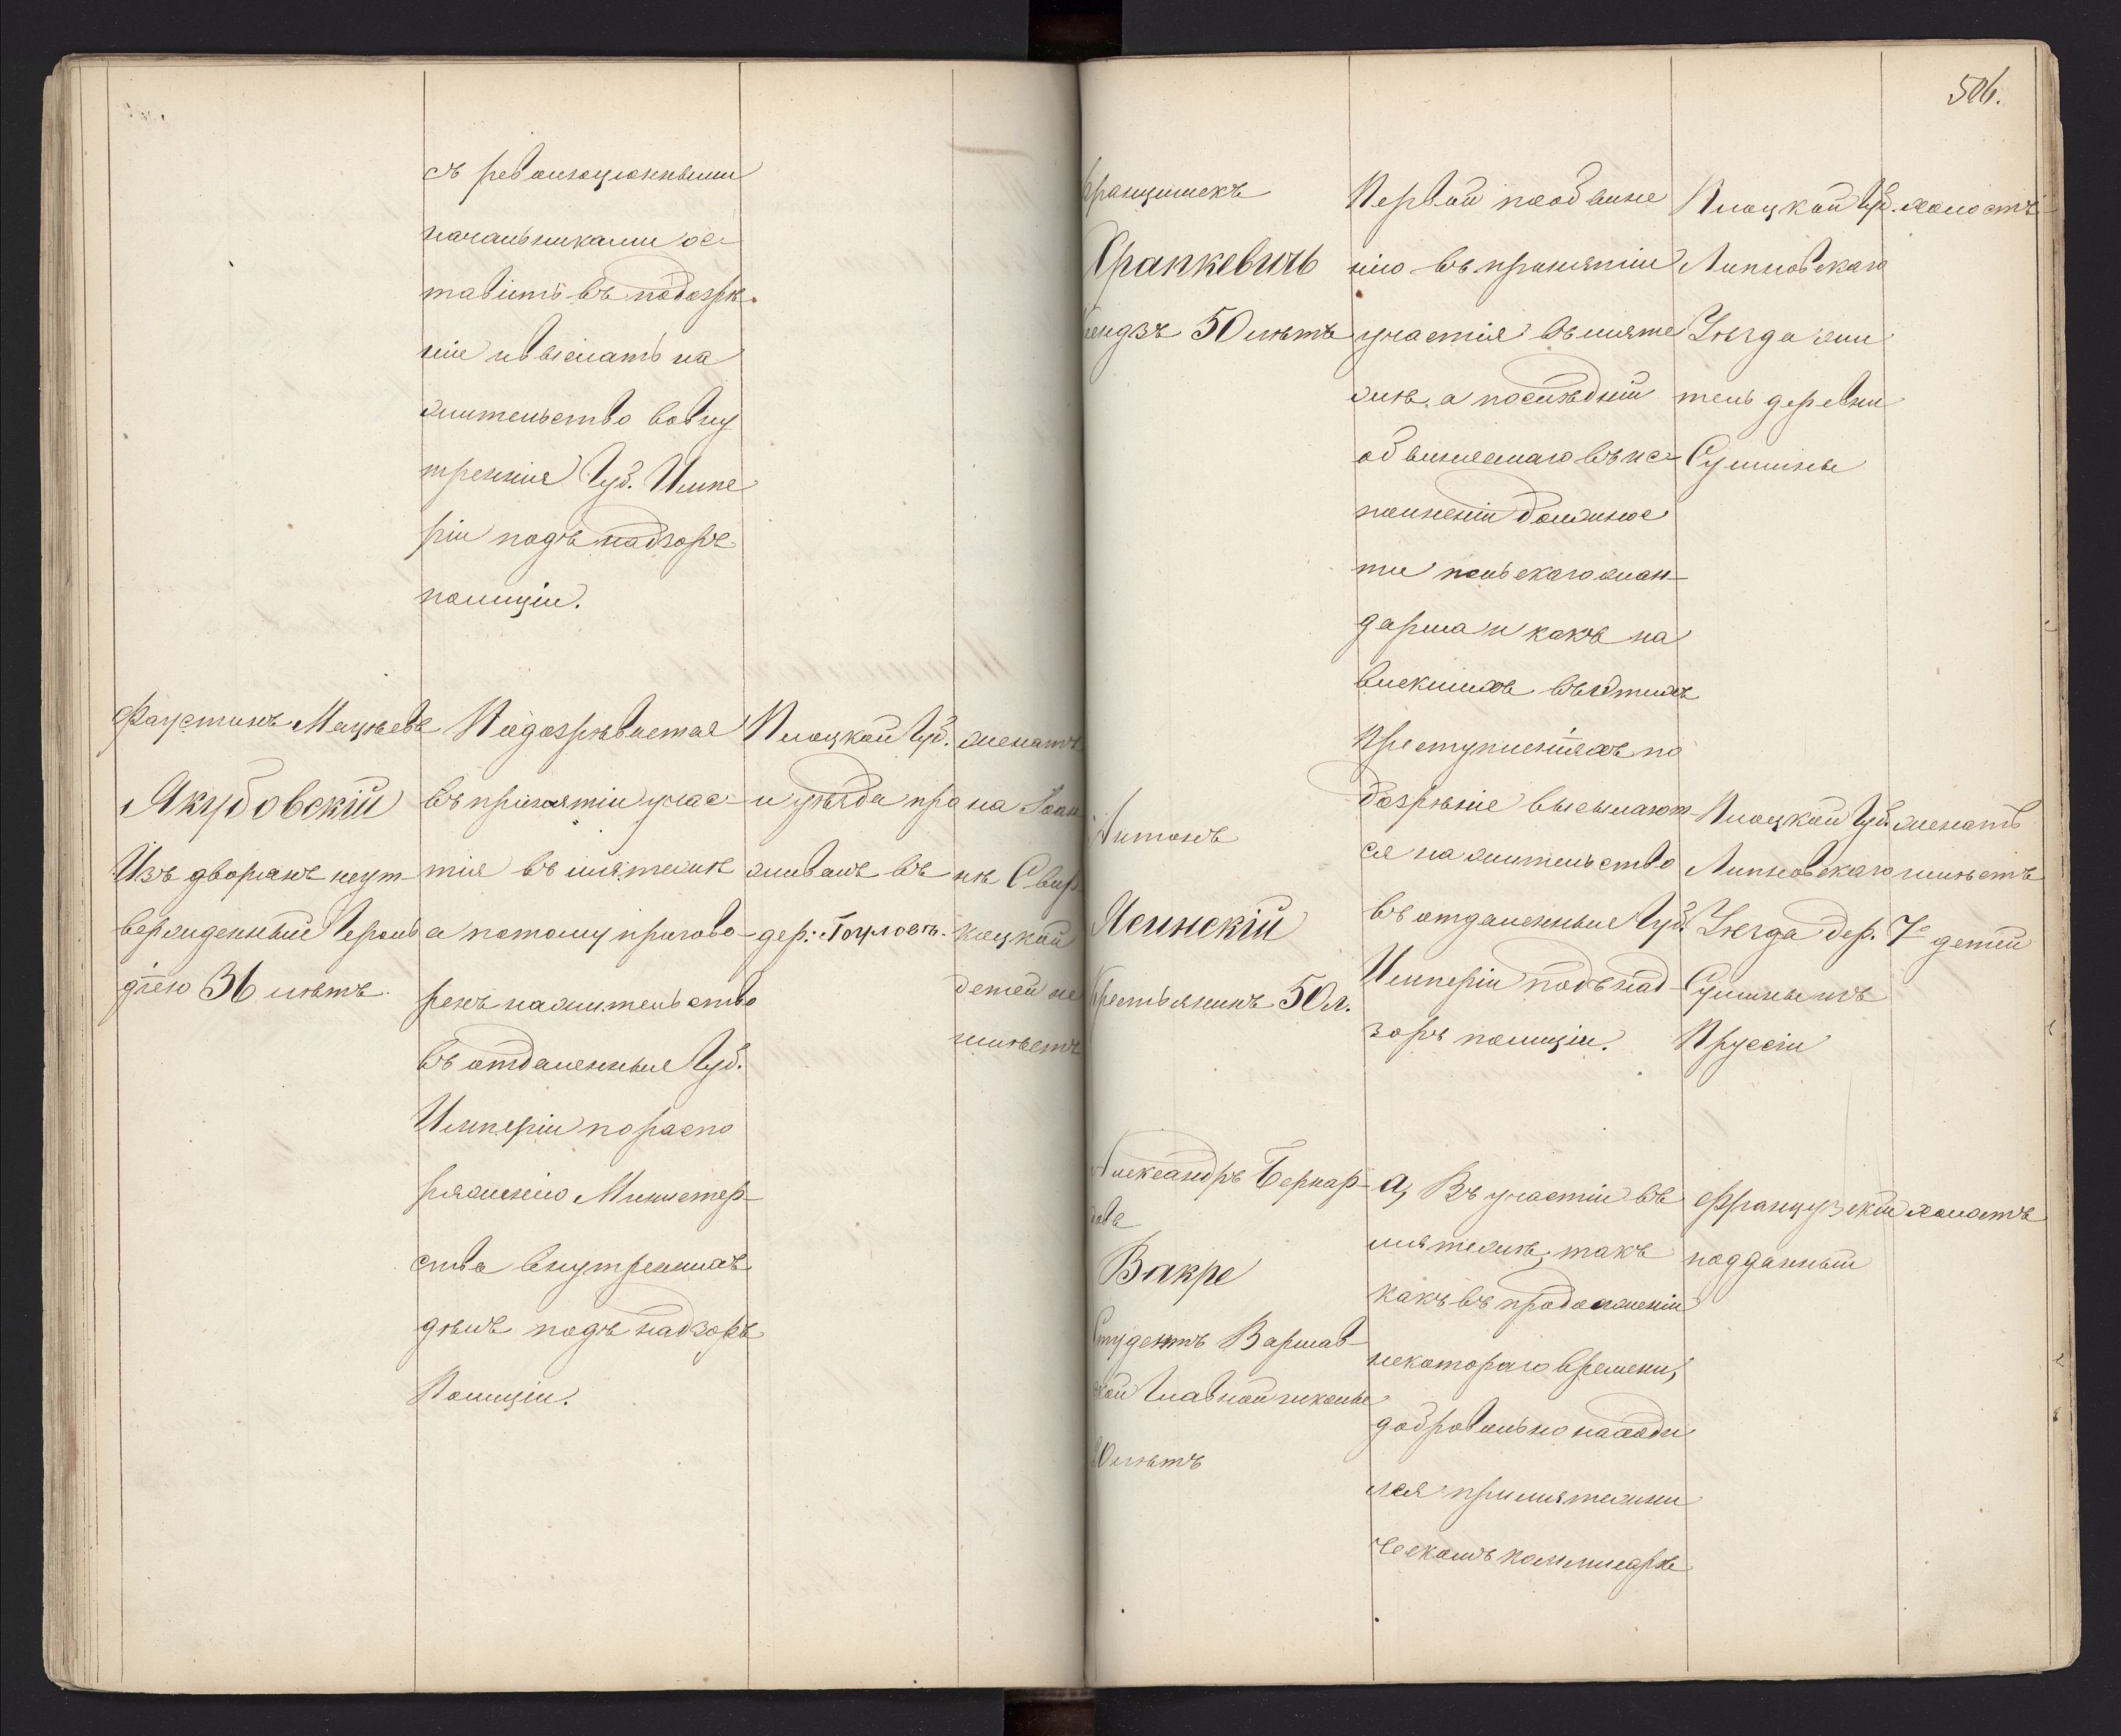 съ революціонными
начальниками ос-
тавить въ подозрѣ
ніи и выслать на
жительство вовну
треннія Губ. Импе
ріи подъ надзоръ
полиціи.
Фаустинъ Мацѣевъ
Якубовскій
Изъ дворянъ неут-
вержденный Героль
діею 36 лѣтъ.
Подозрѣвается
въ принятіи учас-
тія въ мятежѣ
а потому пригово-
ренъ на жительство
въ отдаленныя Губ.
Имперіи по распо
ряженію Министер-
ства внутреннихъ
дѣлъ подъ надзоръ
Полиціи.
Плоцкой Губ.
и уѣзда про
живалъ въ
дер.
женатъ
на Іоан
нѣ Свир
кацкой
детей не
имѣетъ
506.
Францишекъ
Франкевичъ
Ксендзъ 50 лѣтъ
Первый по обвине
нію въ принятіи
участія въ мяте
жѣ, а послѣдній
обвиняемаго въ ис-
полненіи должнос
ти польскаго жан-
дарма и какъ на
влекшихъ въ этихъ
преступленіяхъ по
дозрѣніе высылают-
ся на жительство
въ отдаленныя Губ.
Имперіи подъ над-
зоръ полиціи.
Плоцкой Губ.
Липновскаго
Уѣзда жи
тель деревни
Сумины
холостъ
Антонъ
Ясинскій
Крестьянинъ 50 л.
Плоцкой Губ.
Липновскаго
Уѣзда дер.
Сумины изъ
Пруссіи
женатъ
имѣетъ
7 детей
Александръ Бернар-
довъ
Вакре
Студентъ Варшав-
ской Главной школы
20 лѣтъ
а, Въ участіи въ
мятежѣ, такъ
какъ въ продолженіи
некотораго времени,
добровольно находи
лся при мятежни
ческомъ комисарѣ
Французскій
подданный
холостъ